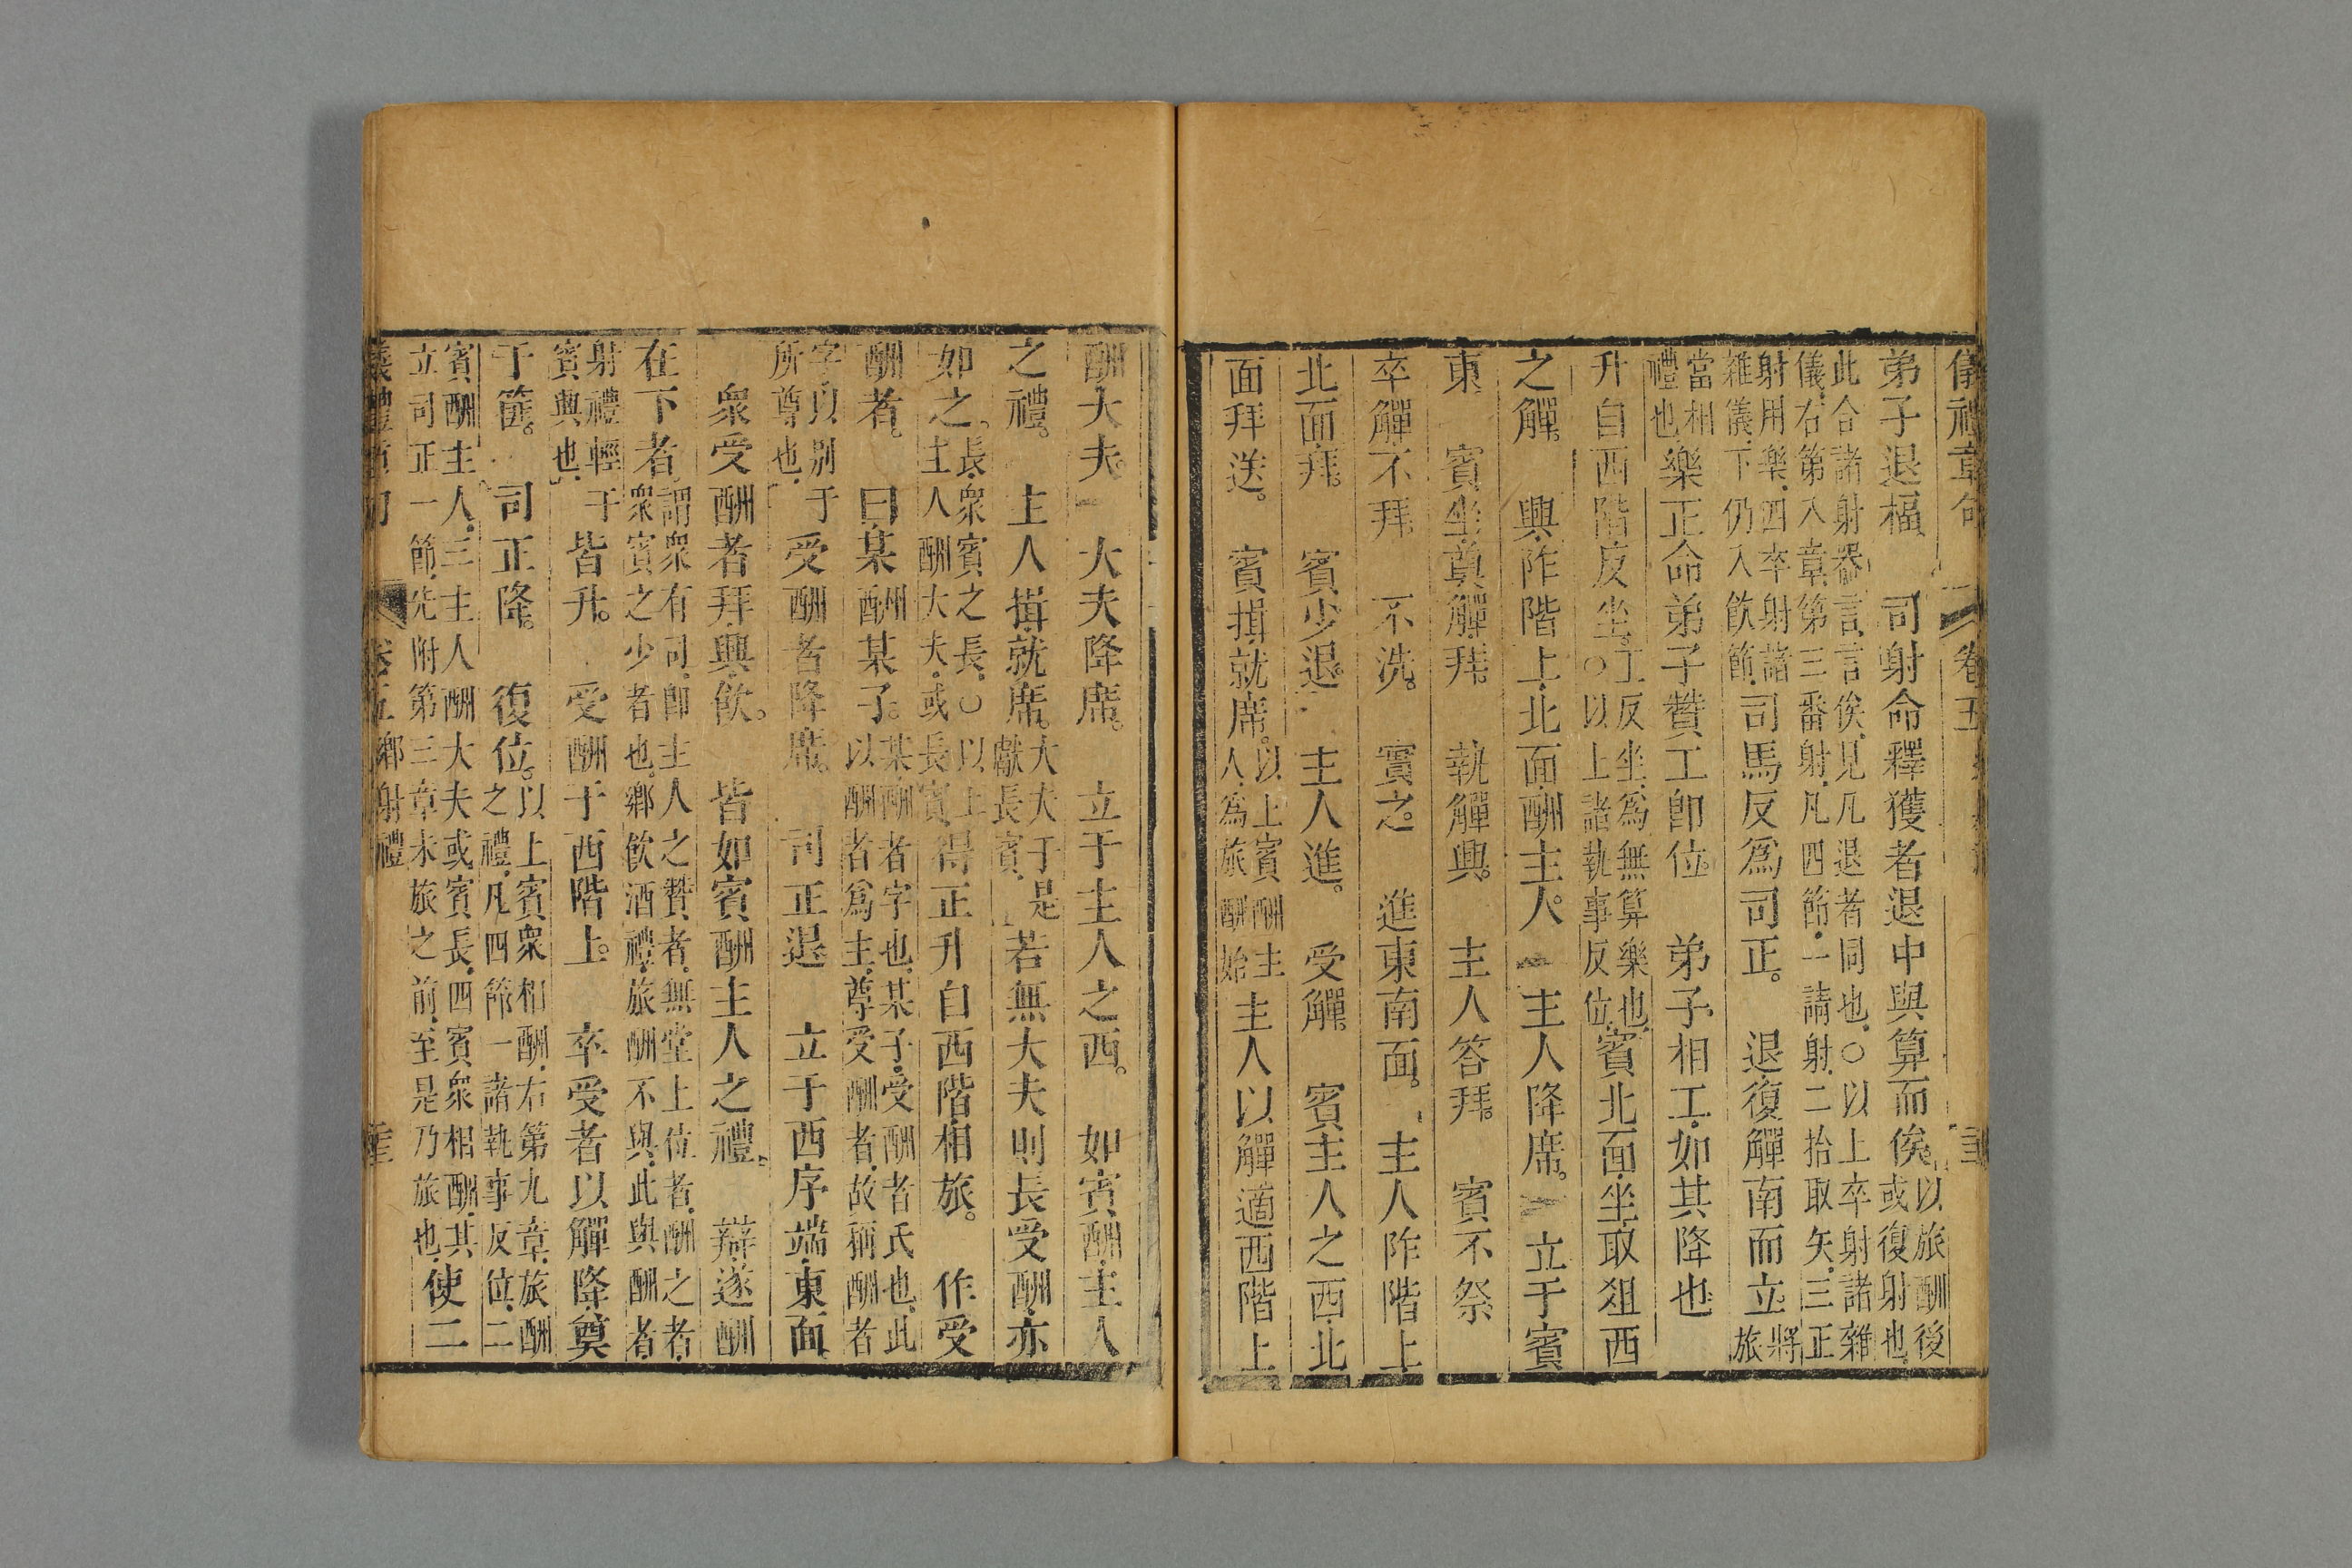 儀禮章句 卷五
弟子退楅 司射命釋獲者退中與算而俟以旅酬後或復射也
此合諸射器言言俟見凡退者同也○以上卒射諸雜
儀右第八章第三番射凡四節一請射二拾取矢三正
射用樂四卒射諸
雜儀下仍入飲節司馬反爲司正 退復觶南而立將旅
當相
禮也樂正命弟子贊工卽位 弟子相工如其降也
升自西階反坐工反坐爲無算樂也○以上諸執事反位賓北面坐取俎西
之觶 興阼階上北面酬主人 主人降席 立于賓
東 賓坐奠觶拜 執觶興 主人答拜 賓不祭
卒觶不拜 不洗 實之 進東南面 主人阼階上
北面拜 賓少退 主人進 受觶 賓主人之西北
面拜送 賓揖就席以上賓酬主人爲旅酬始主人以觶適西階上
酬大夫 大夫降席 立于主人之西 如賓酬主人
之禮 主人揖就席大夫于是獻長賓若無大夫則長受酬亦
如之長衆賓之長○以上主人酬大夫或長賓得正升自西階相旅 作受
酬者 曰某酬某子某酬者字也某子受酬者氏也此以酬者爲主尊受酬者故稱酬者
字以別于所尊也受酬者降席 司正退 立于西序端東面
衆受酬者拜興飲 皆如賓酬主人之禮 辯遂酬
在下者謂衆有司卽主人之贊者無堂上位者酬之者衆賓之少者也鄉飲酒禮旅酬不與此與酬者
射禮輕于賓興也皆升 受酬于西階上 卒受者以觶降奠
于篚 司正降 復位以上賓衆相酬右第九章旅酬之禮凡四節一諸執事反位二
賓酬主人三主人酬大夫或賓長四賓衆相酬其
立司正一節先附第三章未旅之前至是乃旅也使二
儀禮章句 卷五鄉射禮